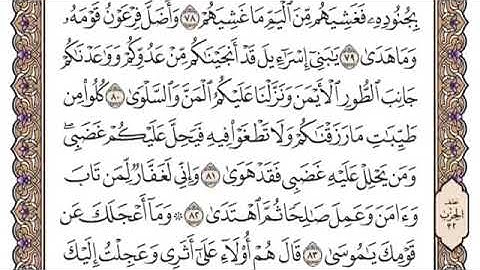 بِجُنُودِهِۦ فَغَشِيَهُم مِّنَ ٱلْيَمِّ مَا غَشِيَهُمْ ٧٨ وَأَضَلَّ فِرْعَوْنُ قَوْمَهُۥ
وَمَا هَدَىٰ ٧٩ يَٰبَنِىٓ إِسْرَٰٓءِيلَ قَدْ أَنجَيْنَٰكُم مِّنْ عَدُوِّكُمْ وَوَٰعَدْنَٰكُمْ
جَانِبَ ٱلطُّورِ ٱلْأَيْمَنَ وَنَزَّلْنَا عَلَيْكُمُ ٱلْمَنَّ وَٱلسَّلْوَىٰ ٨٠ كُلُوا۟ مِن
طَيِّبَٰتِ مَا رَزَقْنَٰكُمْ وَلَا تَطْغَوْا۟ فِيهِ فَيَحِلَّ عَلَيْكُمْ غَضَبِى
وَمَن يَحْلِلْ عَلَيْهِ غَضَبِى فَقَدْ هَوَىٰ ٨١ وَإِنِّى لَغَفَّارٌ لِّمَن تَابَ
وَءَامَنَ وَعَمِلَ صَٰلِحًا ثُمَّ ٱهْتَدَىٰ ٨٢ ۞ وَمَآ أَعْجَلَكَ عَن
قَوْمِكَ يَٰمُوسَىٰ ٨٣ قَالَ هُمْ أُو۟لَآءِ عَلَىٰٓ أَثَرِى وَعَجِلْتُ إِلَيْكَ
الحزب